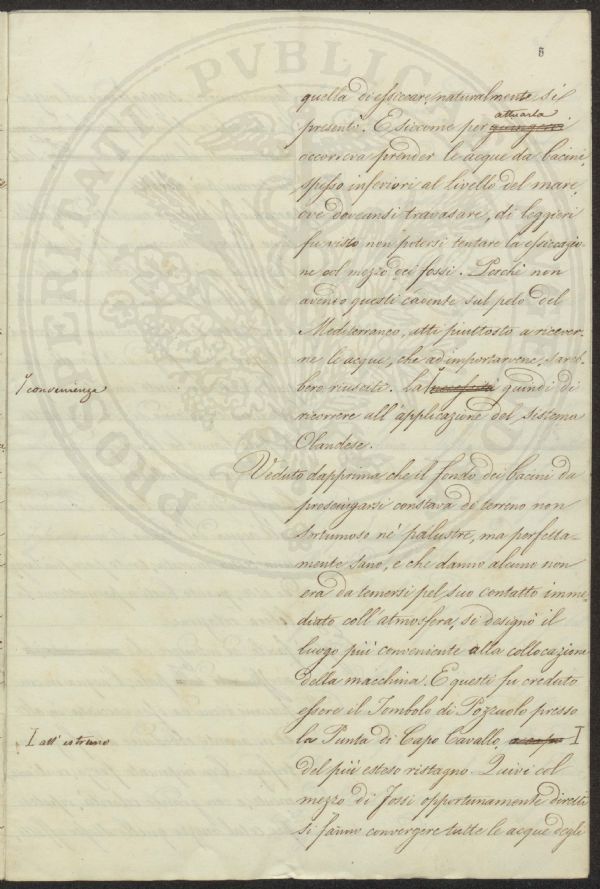 8
quella di essiccare, naturalmente si
presentò. E siccome per giungervi attuarla
occorreva prender le acque da bacini
spesso inferiori al livello del mare,
ove dovevansi travasare, di leggieri
fu visto non potersi tentare la essicazio-
ne col mezzo dei fossi. Perchè non
avendo questi cadente sul pelo del
Mediterraneo, atti piuttosto a ricever-
ne le acque, che ad importarvene, sareb-
bero riusciti. La necessità quindi di
convenienza
ricorrere all'applicazione del Sistema
Olandese.
Veduto dapprima che il fondo dei bacini da
prosciugarsi constava di terreno non
fortumoso nè palustre, ma perfetta-
mente sano, e che danno alcuno non
era da temersi pel suo contatto imme
diato coll'atmosfera, si designò il
luogo più conveniente alla collocazione
della macchina. E questi fu creduto
essere il Tombolo di Pozzuolo presso
la Punta di Capo Cavallo, a capo I
I all'estremo
del più esteso ristagno. Quivi col
mezzo di fossi opportunamente diretti
si fanno convergere tutte le acque degli
PROSPERITATI PVBLICAE